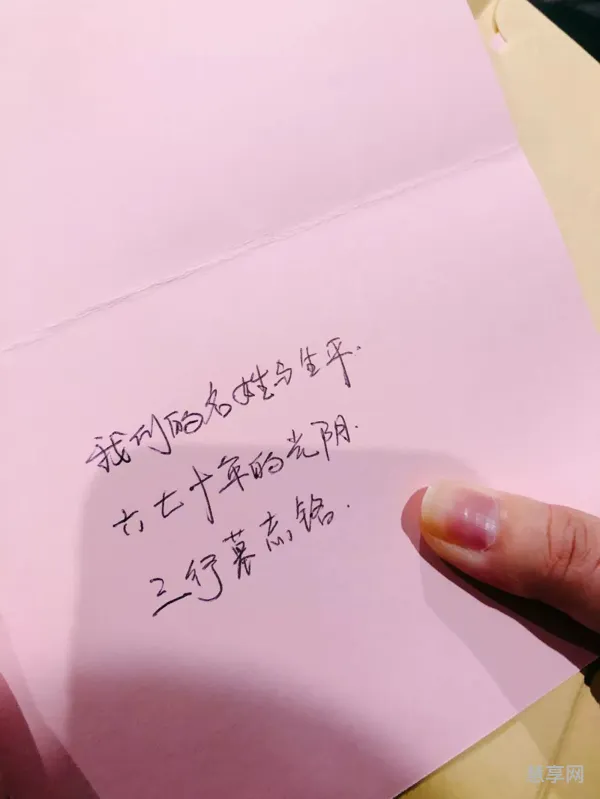 我们的名姓与生平.
六七十年的光阴.
三行墓志铭.